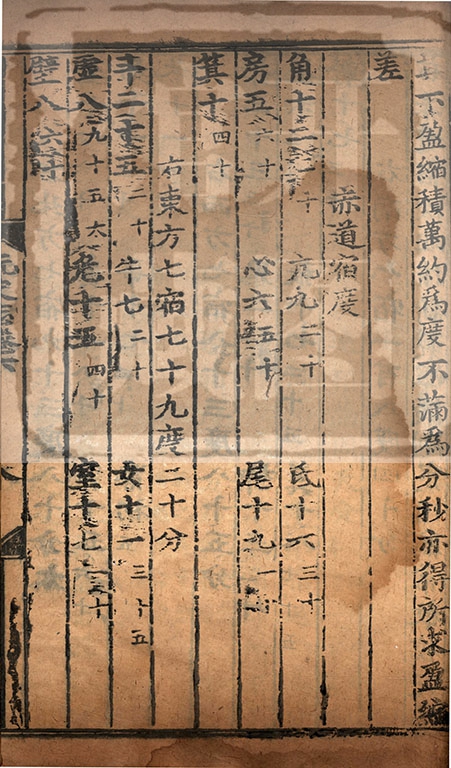 其下盈縮積萬約爲度不滿爲分秒亦得所求盈縮
差
赤道宿度
角十二一十 亢九二十 氐十六三十
房五六十 心六五十 尾十九一十
箕十四十
右東方七宿七十九度二十分
斗二十五二十 牛七二十 女十一三十五
虛八九十五太 危十五四十 室十七一十
壁八六十